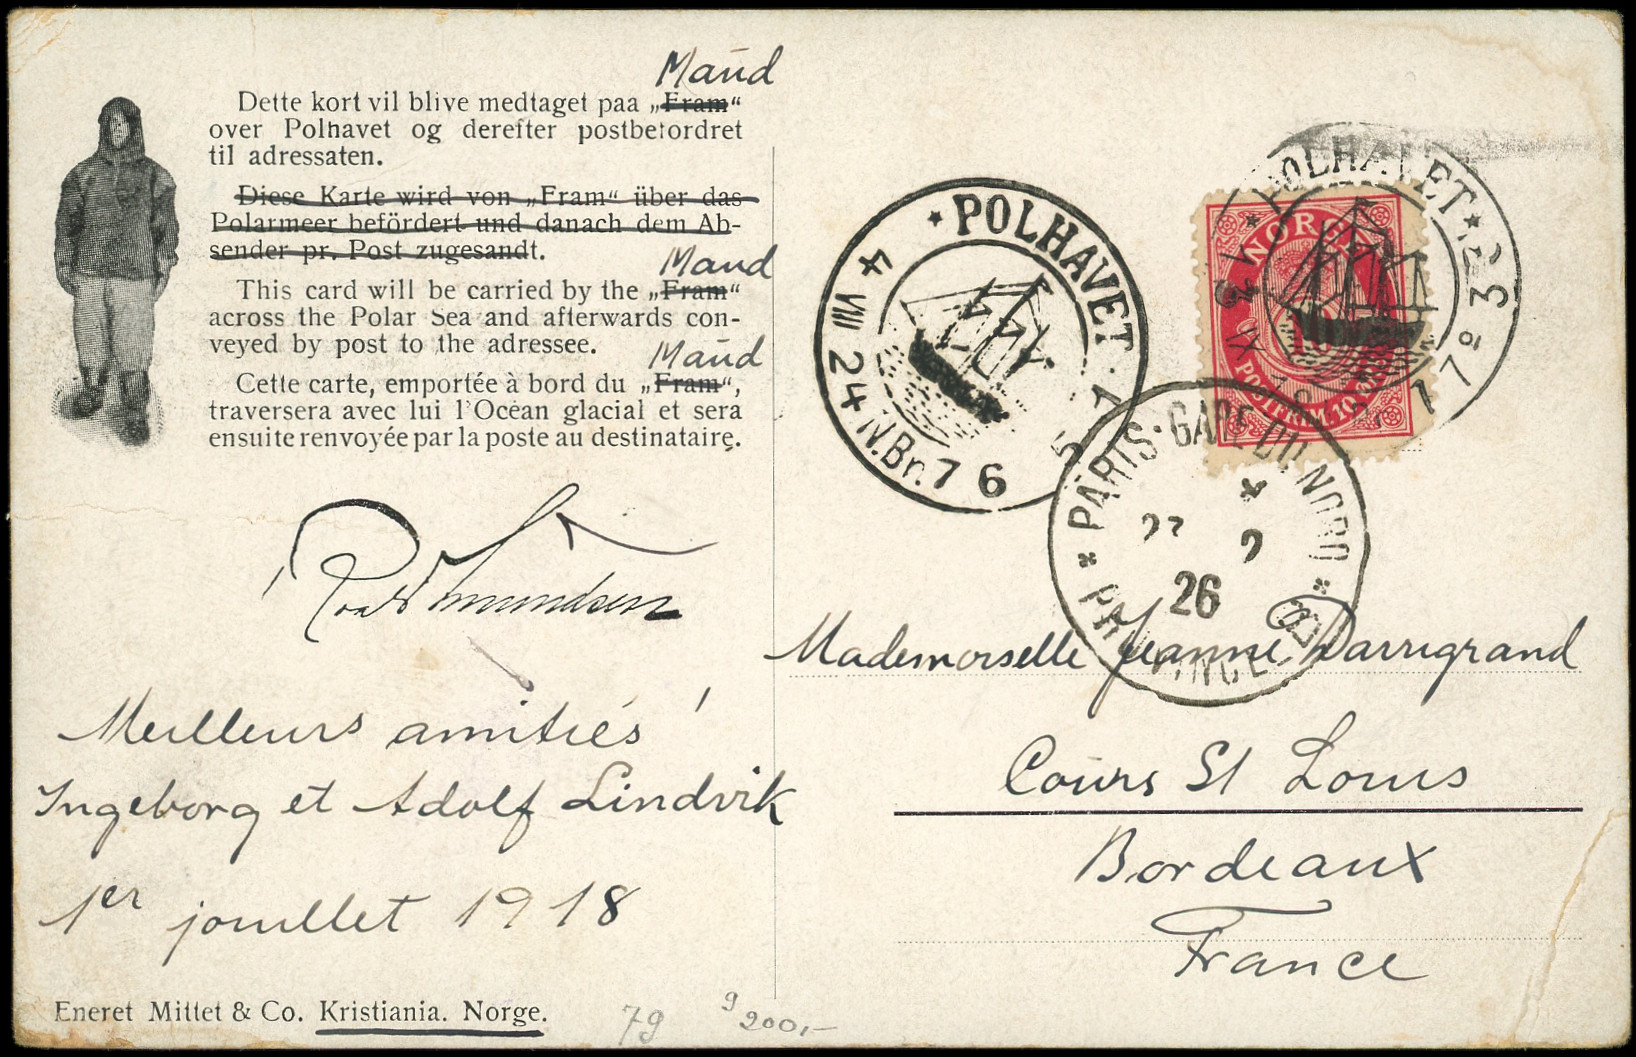 Maud
Dette kort vil blive medtaget paa „Fram“
over Polhavet og derefter postbefordret
til adressaten.
Diese Karte wird von „Fram“ über das
Polarmeer befördert und danach dem Ab-
sender pr. Post zugesandt.
Maud
This card will be carried by the „Fram“
across the Polar Sea and afterwards con-
veyed by post to the adressee.
Maud
Cette carte, emportée à bord du „Fram“,
traversera avec lui l'Océan glacial et sera
ensuite renvoyée par la poste au destinataire.
Roald Amundsen
Meilleurs amitiés!
Ingeborg et Adolf Lindvik
1er jouillet 1918
Eneret Mittet & Co. Kristiania. Norge.
79
9200,-
* POLHAVET
4 VIII 24 N.Br. 76
POLHAVET *
NORGE
POSTFRIM. 10
* PARIS-GARE DU NORD *
26
PROVINCE
Mademoiselle Jeanne Darrigrand
Cours St Louis
Bordeaux
France